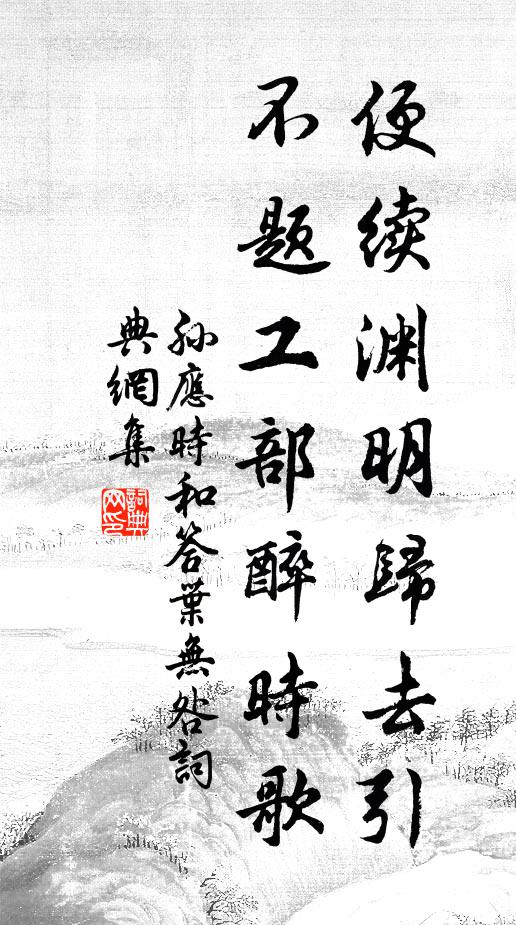 便續渊明歸去引
不题工部醉時歌
孙應時和答葉無咎詞
典網集
詞典
网印